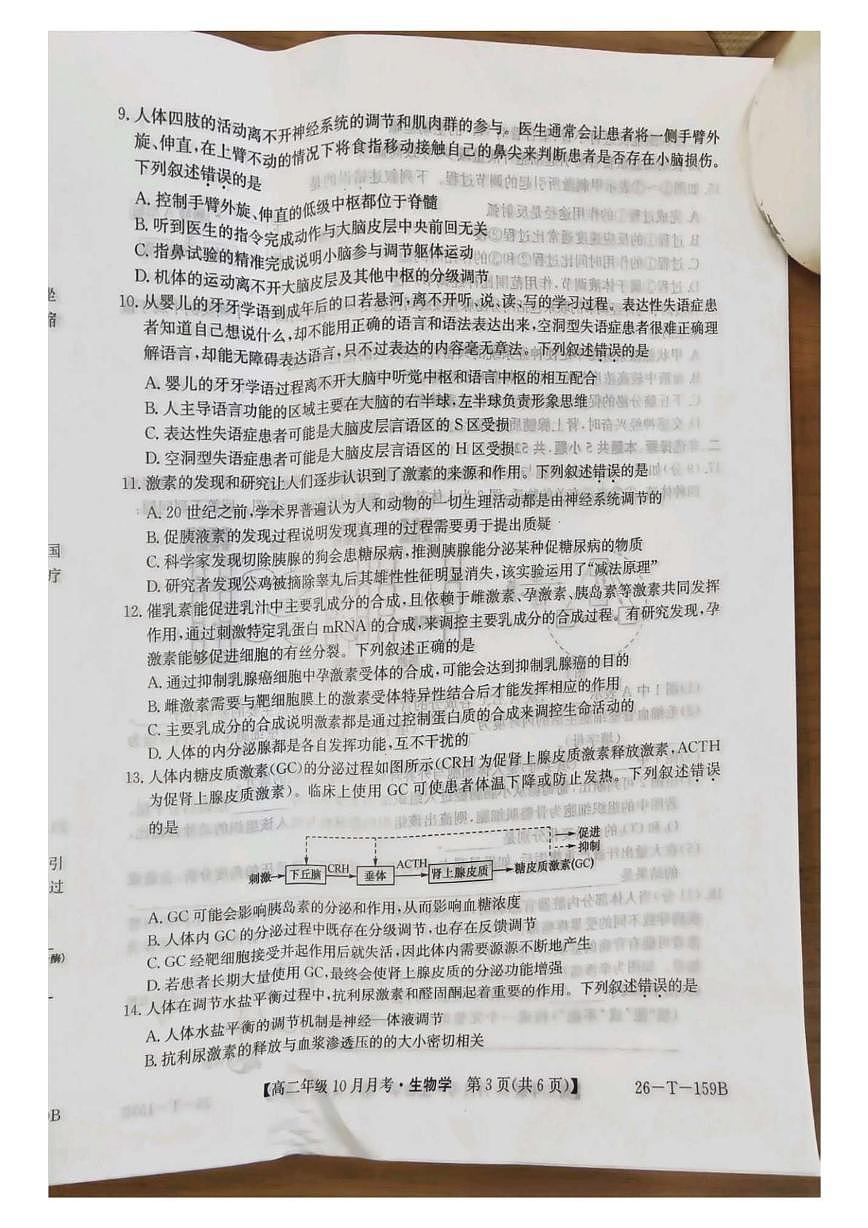 9. 人体四肢的活动离不开神经系统的调节和肌肉群的参与。医生通常会让患者将一侧手臂外
旋、伸直,在上臂不动的情况下将食指移动接触自己的鼻尖来判断患者是否存在小脑损伤。
下列叙述错误的是
A. 控制手臂外旋、伸直的低级中枢都位于脊髓
B. 听到医生的指令完成动作与大脑皮层中央前回无关
C. 指鼻试验的精准完成说明小脑参与调节躯体运动
D. 机体的运动离不开大脑皮层及其他中枢的分级调节
10. 从婴儿的牙牙学语到成年后的口若悬河,离不开听、说、读、写的学习过程。表达性失语症患
者知道自己想说什么,却不能用正确的语言和语法表达出来,空洞型失语症患者很难正确理
解语言,却能无障碍表达语言,只不过表达的内容毫无章法。下列叙述错误的是
A. 婴儿的牙牙学语过程离不开大脑中听觉中枢和语言中枢的相互配合
B. 人主导语言功能的区域主要在大脑的右半球,左半球负责形象思维
C. 表达性失语症患者可能是大脑皮层言语区的 S 区受损
D. 空洞型失语症患者可能是大脑皮层言语区的 H 区受损
11. 激素的发现和研究让人们逐步认识到了激素的来源和作用。下列叙述错误的是
A. 20 世纪之前,学术界普遍认为人和动物的一切生理活动都是由神经系统调节的
B. 促胰液素的发现过程说明发现真理的过程需要勇于提出质疑
C. 科学家发现切除胰腺的狗会患糖尿病,推测胰腺能分泌某种促糖尿病的物质
D. 研究者发现公鸡被摘除睾丸后其雄性性征明显消失,该实验运用了“减法原理”
12. 催乳素能促进乳汁中主要乳成分的合成,且依赖于雌激素、孕激素、胰岛素等激素共同发挥
作用,通过刺激特定乳蛋白 mRNA 的合成,来调控主要乳成分的合成过程。有研究发现,孕
激素能够促进细胞的有丝分裂。下列叙述正确的是
A. 通过抑制乳腺癌细胞中孕激素受体的合成,可能会达到抑制乳腺癌的目的
B. 雌激素需要与靶细胞膜上的激素受体特异性结合后才能发挥相应的作用
C. 主要乳成分的合成说明激素都是通过控制蛋白质的合成来调控生命活动的
D. 人体的内分泌腺都是各自发挥功能,互不干扰的
13. 人体内糖皮质激素(GC)的分泌过程如图所示(CRH 为促肾上腺皮质激素释放激素,ACTH
为促肾上腺皮质激素)。临床上使用 GC 可使患者体温下降或防止发热。下列叙述错误
的是
促进
抑制
刺激 下丘脑 CRH 垂体 ACTH 肾上腺皮质 糖皮质激素(GC)
A. GC 可能会影响胰岛素的分泌和作用,从而影响血糖浓度
B. 人体内 GC 的分泌过程中既存在分级调节,也存在反馈调节
C. GC 经靶细胞接受并起作用后就失活,因此体内需要源源不断地产生
D. 若患者长期大量使用 GC,最终会使肾上腺皮质的分泌功能增强
14. 人体在调节水盐平衡过程中,抗利尿激素和醛固酮起着重要的作用。下列叙述错误的是
A. 人体水盐平衡的调节机制是神经—体液调节
B. 抗利尿激素的释放与血浆渗透压的的大小密切相关
【高二年级 10 月月考·生物学 第 3 页(共 6 页)】 26-T-159B